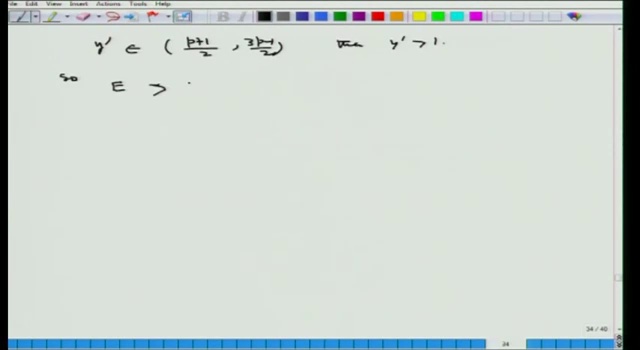 File View Insert Actions Tools Help
y' ∈ ( p+1/2 , 3p-1/2 ) then y' > 1.
So E >
34 / 40
34